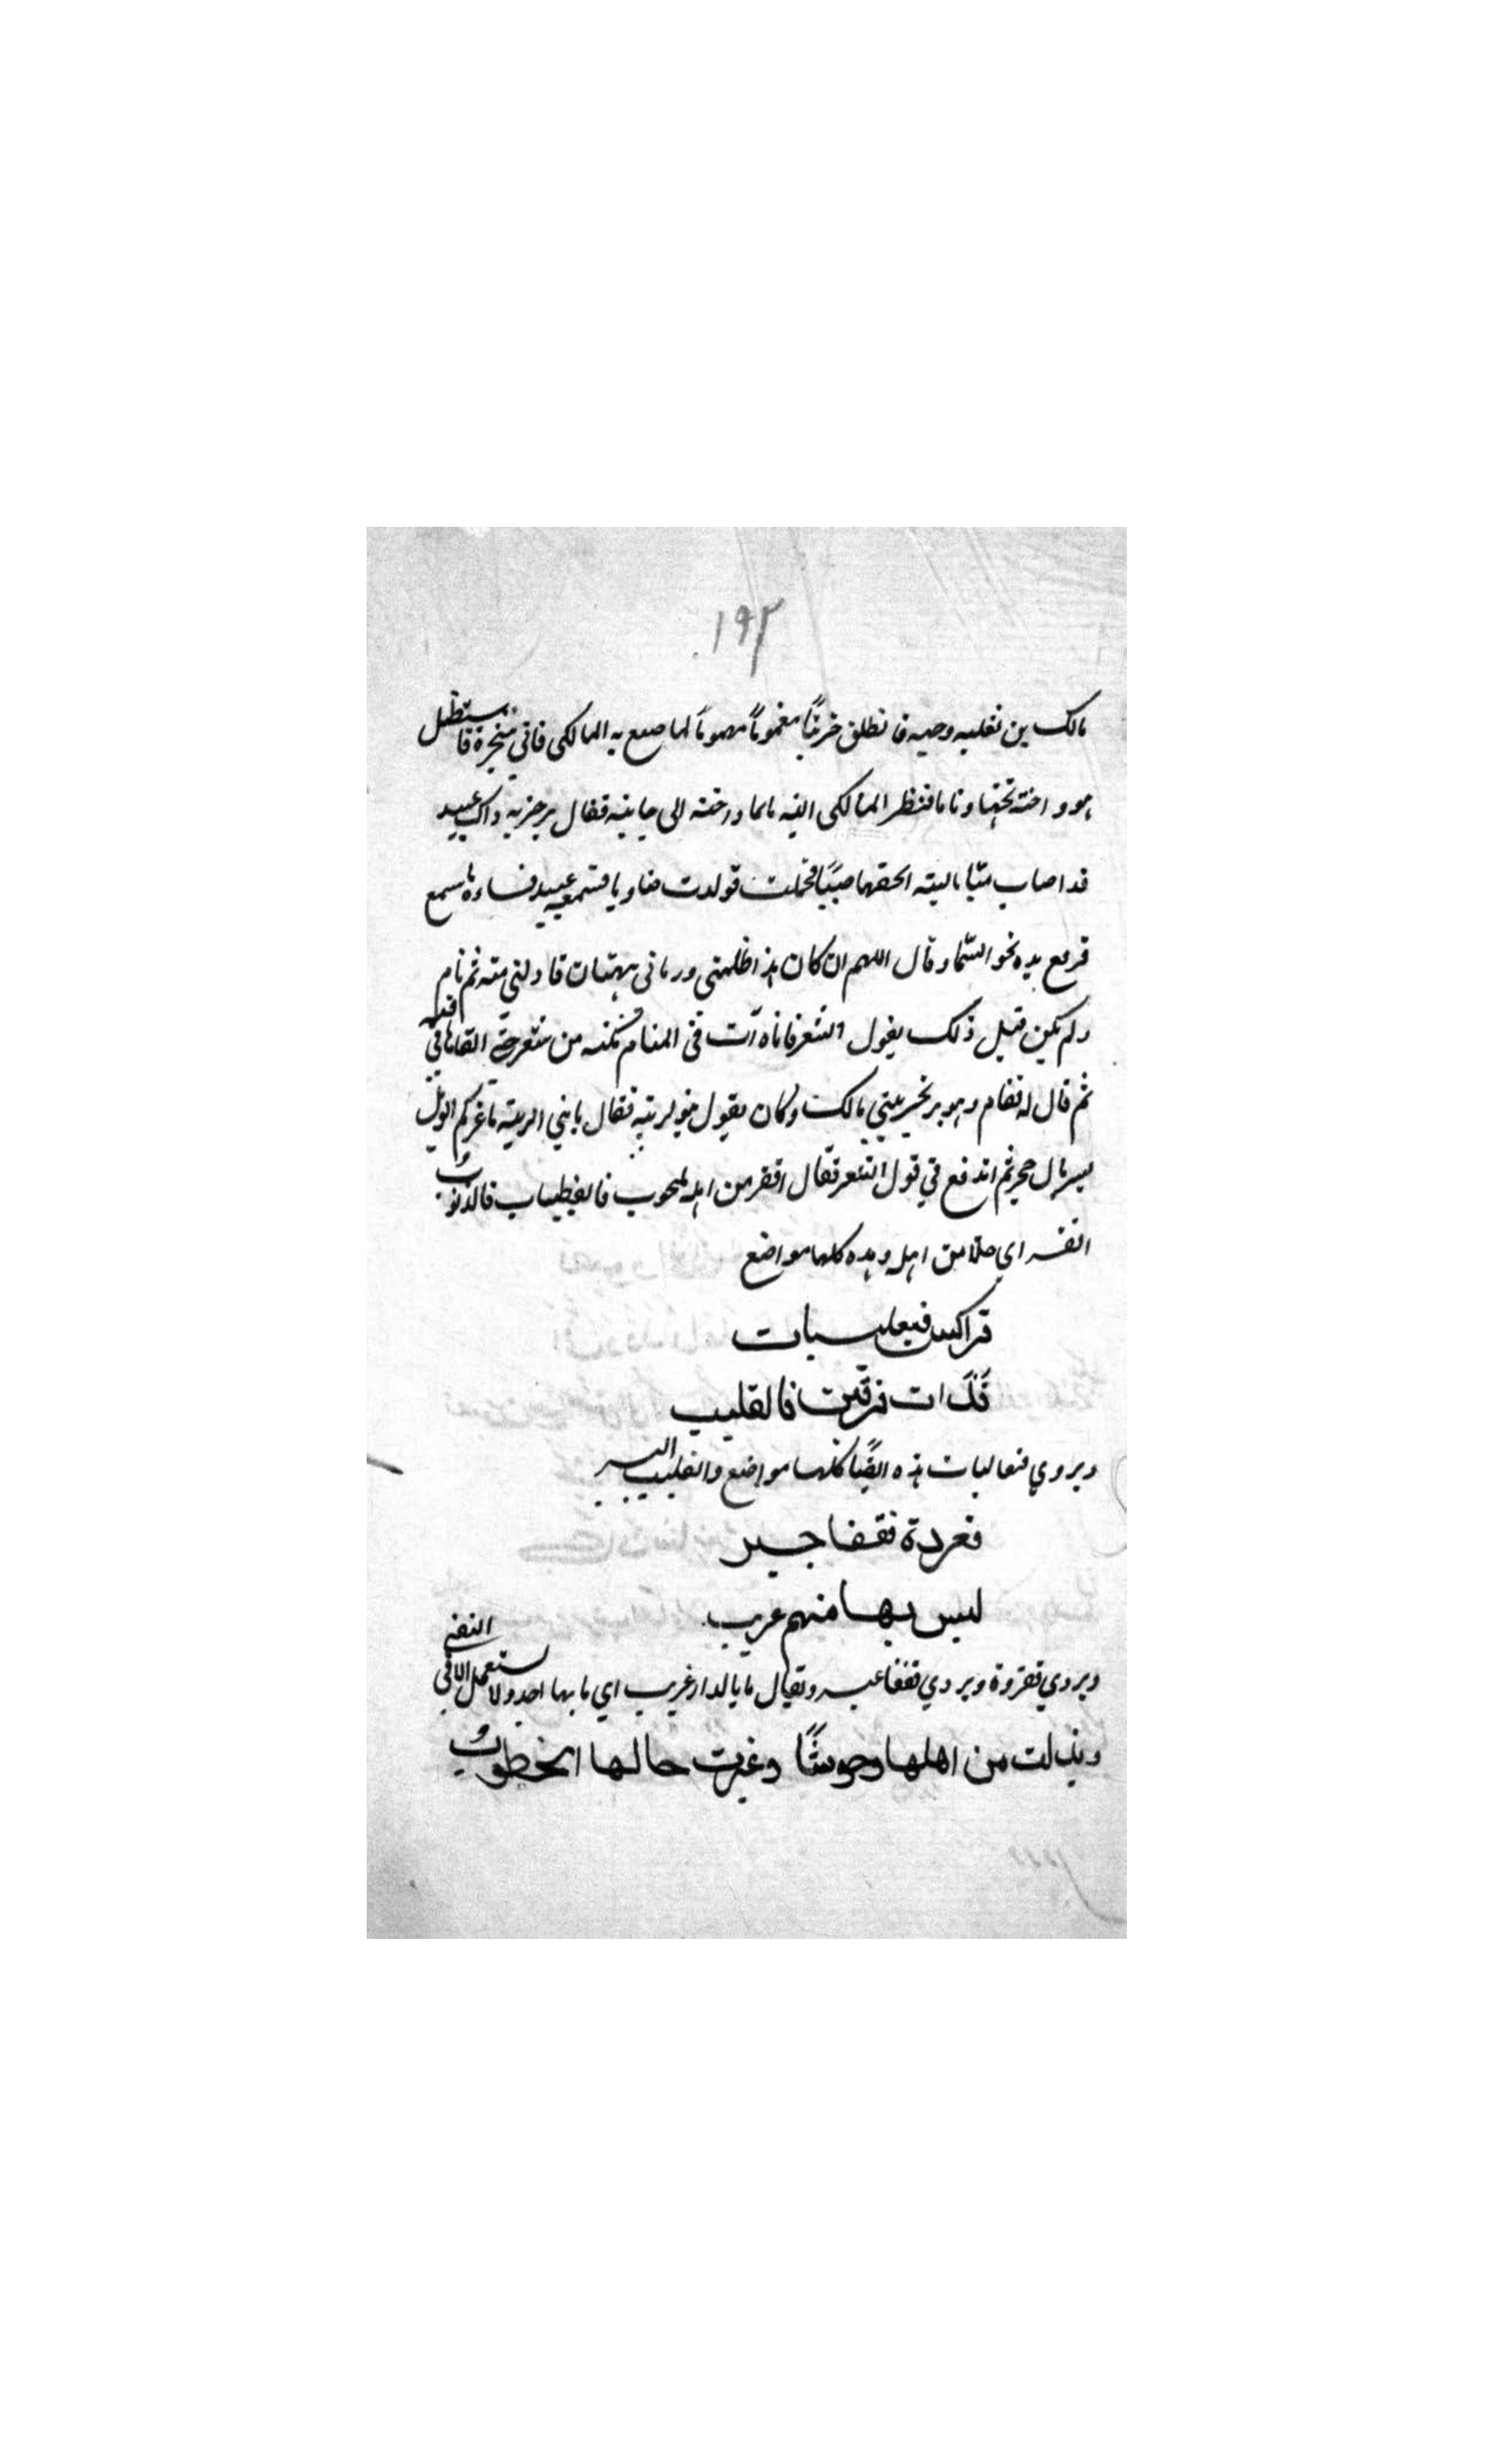 ١٩٣
مالک بن ثعلبه وجبه فانطلق حزينًا مغمومًا مهمومًا لما صنع به المالکی فاتي شجرة فاستظل
هو و اخته تحتها و ناما فنظر المالکی اليه نائما و اخته الی جانبه فقال يرجز به ذاک عبيد
قد اصاب ميّا ياليته الحقها صبيًا فحملت فولدت ضاويا فسمعه عبيد فساءه ما سمع
فرفع يده نحو السّماء وقال اللهم ان کان هذا ظلمني و رماني ببهتان فادلني منه ثم نام
ولم يکن قبل ذلک يقول الشعر فاتاه آت في المنام بکبة من شعر حتی القاها في فيه
ثم قال له فقام و هو يرتجز ببني مالک و کان يقول فقال يا بني الزنية ما غرکم الويل
بسربال حجر ثم اندفع في قول الشعر فقال اقفر من اهله ملحوب فالقطبيات فالذنوبُ
اقفر اي خلا من اهله و هذه کلها مواضع
فراکس فثعلبيات
فذات فرقين فالقليب
ويروي فثعالبات هذه ايضًا کلها مواضع والقليب البير
فعردة فقفا حبر
ليس بها منهم عريب
ويروي ففردة ويروي فقفا عبر ويقال ما بالدار عريب اي ما بها احد ولا يستعمل الا في النفي
وبدلت من اهلها وحوشًا وغيرت حالها الخطوبُ